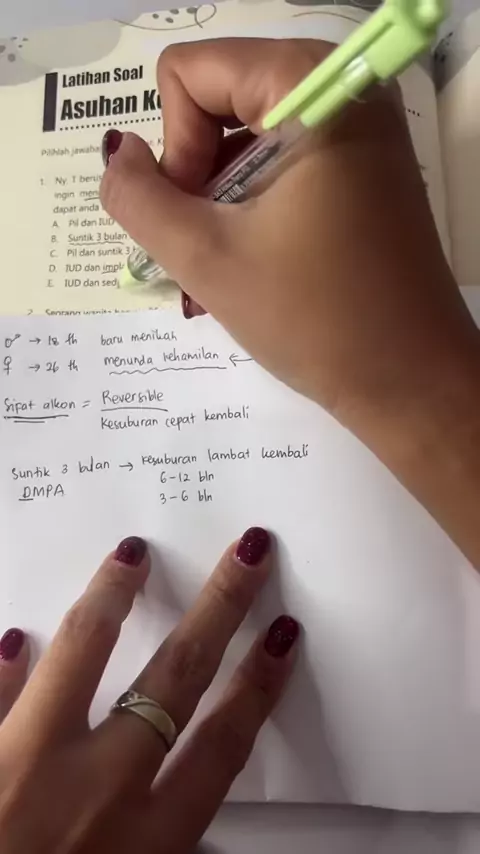 Latihan Soal
Asuhan
Pilihlah
1. Ny. T
ingin
dapat anda
A. Pil dan IUD
B. Suntik 3 bulan
C. Pil dan suntik 3
D. IUD dan
E. IUD dan
2. Seorang wanita
♂ → 18 th baru menikah
♀ → 26 th menunda kehamilan ←
Sifat alkon = Reversible
Kesuburan cepat kembali
Suntik 3 bulan → Kesuburan lambat kembali
DMPA 6-12 bln
3-6 bln